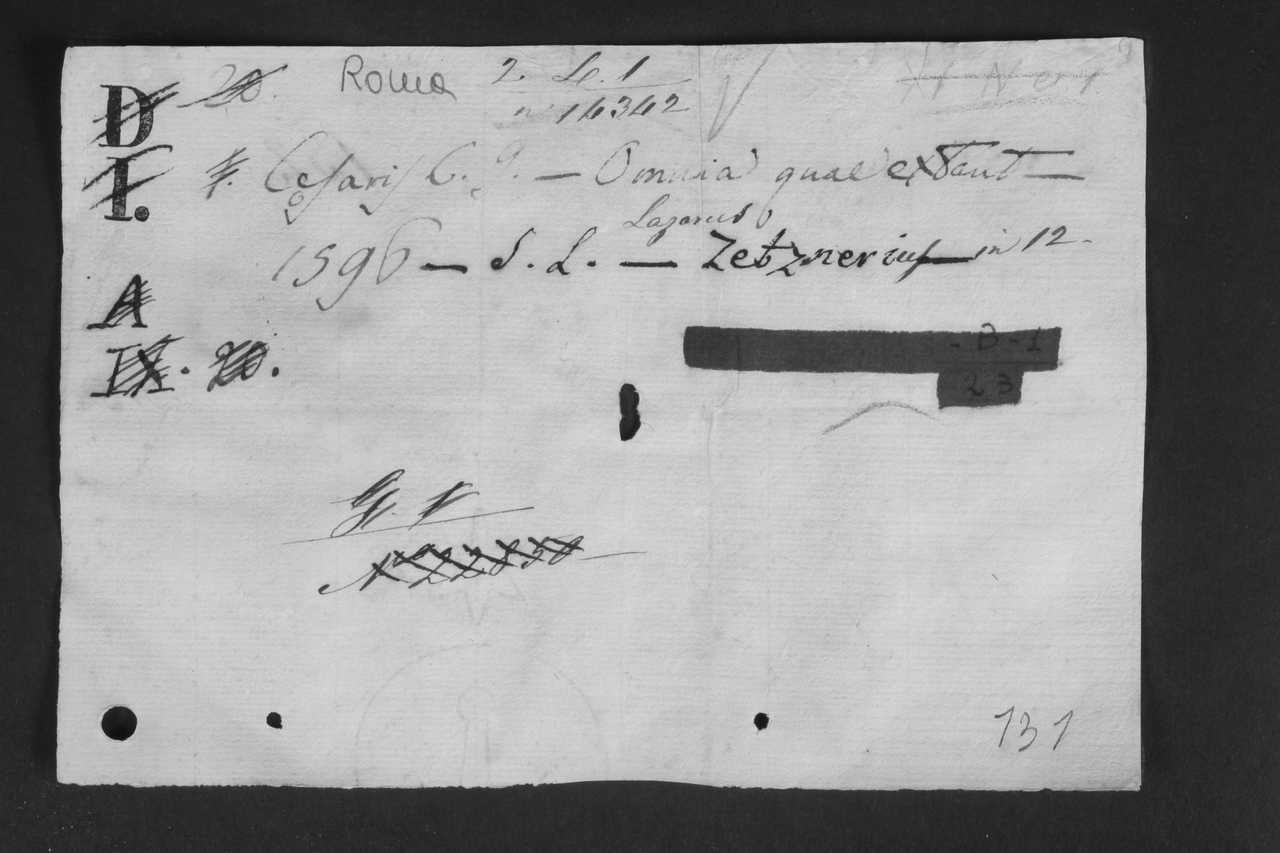 D 20. Roma 2. Le. 1
n° 14342
I. Cesaris C. J. — Omnia quae extant —
Lazarus
1596 — S. L. — Zetznerius — in 12.
A
- B - 1
IX. 20.
23
N° 22830
131